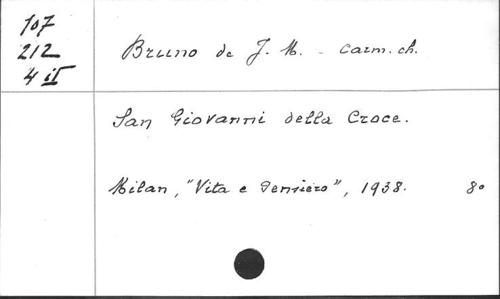 107
212
4 II
Bruno de J. M. - carm. ch.
San Giovanni della Croce.
Milan, "Vita e Pensiero", 1938. 8°